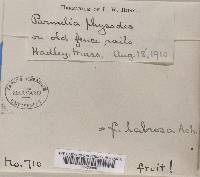 Parmelia physodes
on old fence rails
Hadley, Mass. Aug. 18, 1910
HARVARD
f. labrosa Ach.
No. 710
fruit!